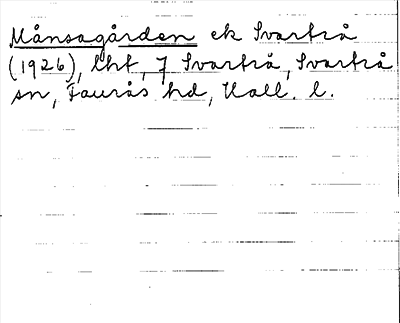 Månsagården ek Svartrå
(1926), lht, 7 Svartrå, Svartrå
sn, Faurås hd, Hall. l.